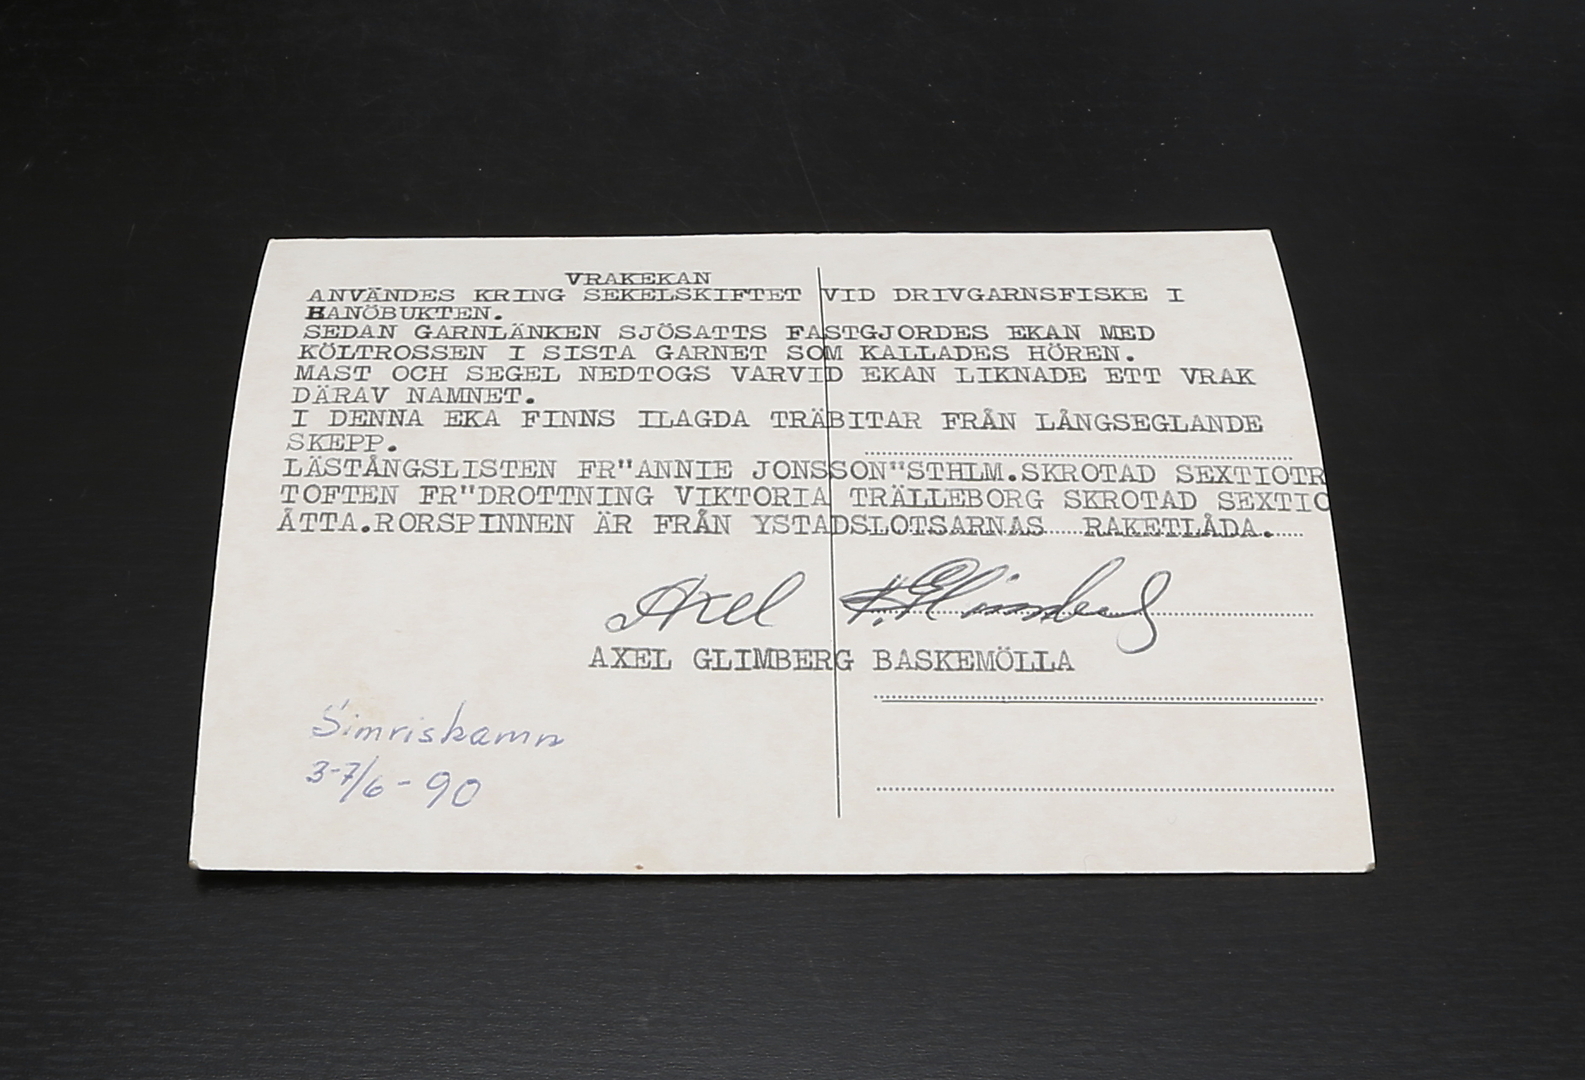 VRAKEKAN
ANVÄNDES KRING SEKELSKIFTET VID DRIVGARNSFISKE I
HANÖBUKTEN.
SEDAN GARNLÄNKEN SJÖSATTS FASTGJORDES EKAN MED
KÖLTROSSEN I SISTA GARNET SOM KALLADES HÖREN.
MAST OCH SEGEL NEDTOGS VARVID EKAN LIKNADE ETT VRAK
DÄRAV NAMNET.
I DENNA EKA FINNS ILAGDA TRÄBITAR FRÅN LÅNGSEGLANDE
SKEPP.
LÄSTÅNGSLISTEN FR"ANNIE JONSSON"STHLM.SKROTAD SEXTIOTR
TOFTEN FR"DROTTNING VIKTORIA TRÄLLEBORG SKROTAD SEXTIO
ÅTTA.RORSPINNEN ÄR FRÅN YSTADSLOTSARNAS RAKETLÅDA.
Axel Glimberg
AXEL GLIMBERG BASKEMÖLLA
Simrishamn
3-7/6-90